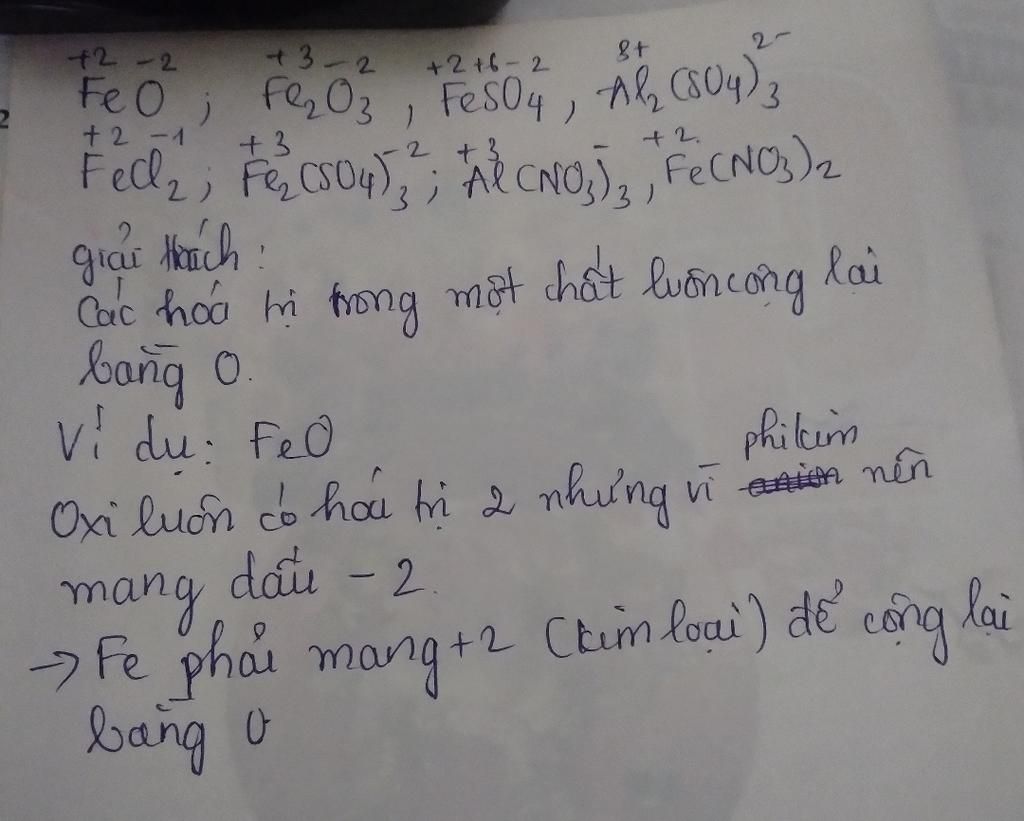 +2 -2 +3 -2 +2 +6 -2 3+ 2-
FeO ; Fe₂O₃ , FeSO₄ , Al₂(SO₄)₃
+2 -1 +3 -2 +3 - +2
FeCl₂ ; Fe₂(SO₄)₃ ; Al(NO₃)₃ , Fe(NO₃)₂
giải thích :
Các hoá trị trong một chất luôn cộng lại
bằng 0.
Ví dụ : FeO
Oxi luôn có hoá trị 2 nhưng vì phi kim nên
mang dấu - 2.
→ Fe phải mang +2 (kim loại) để cộng lại
bằng 0